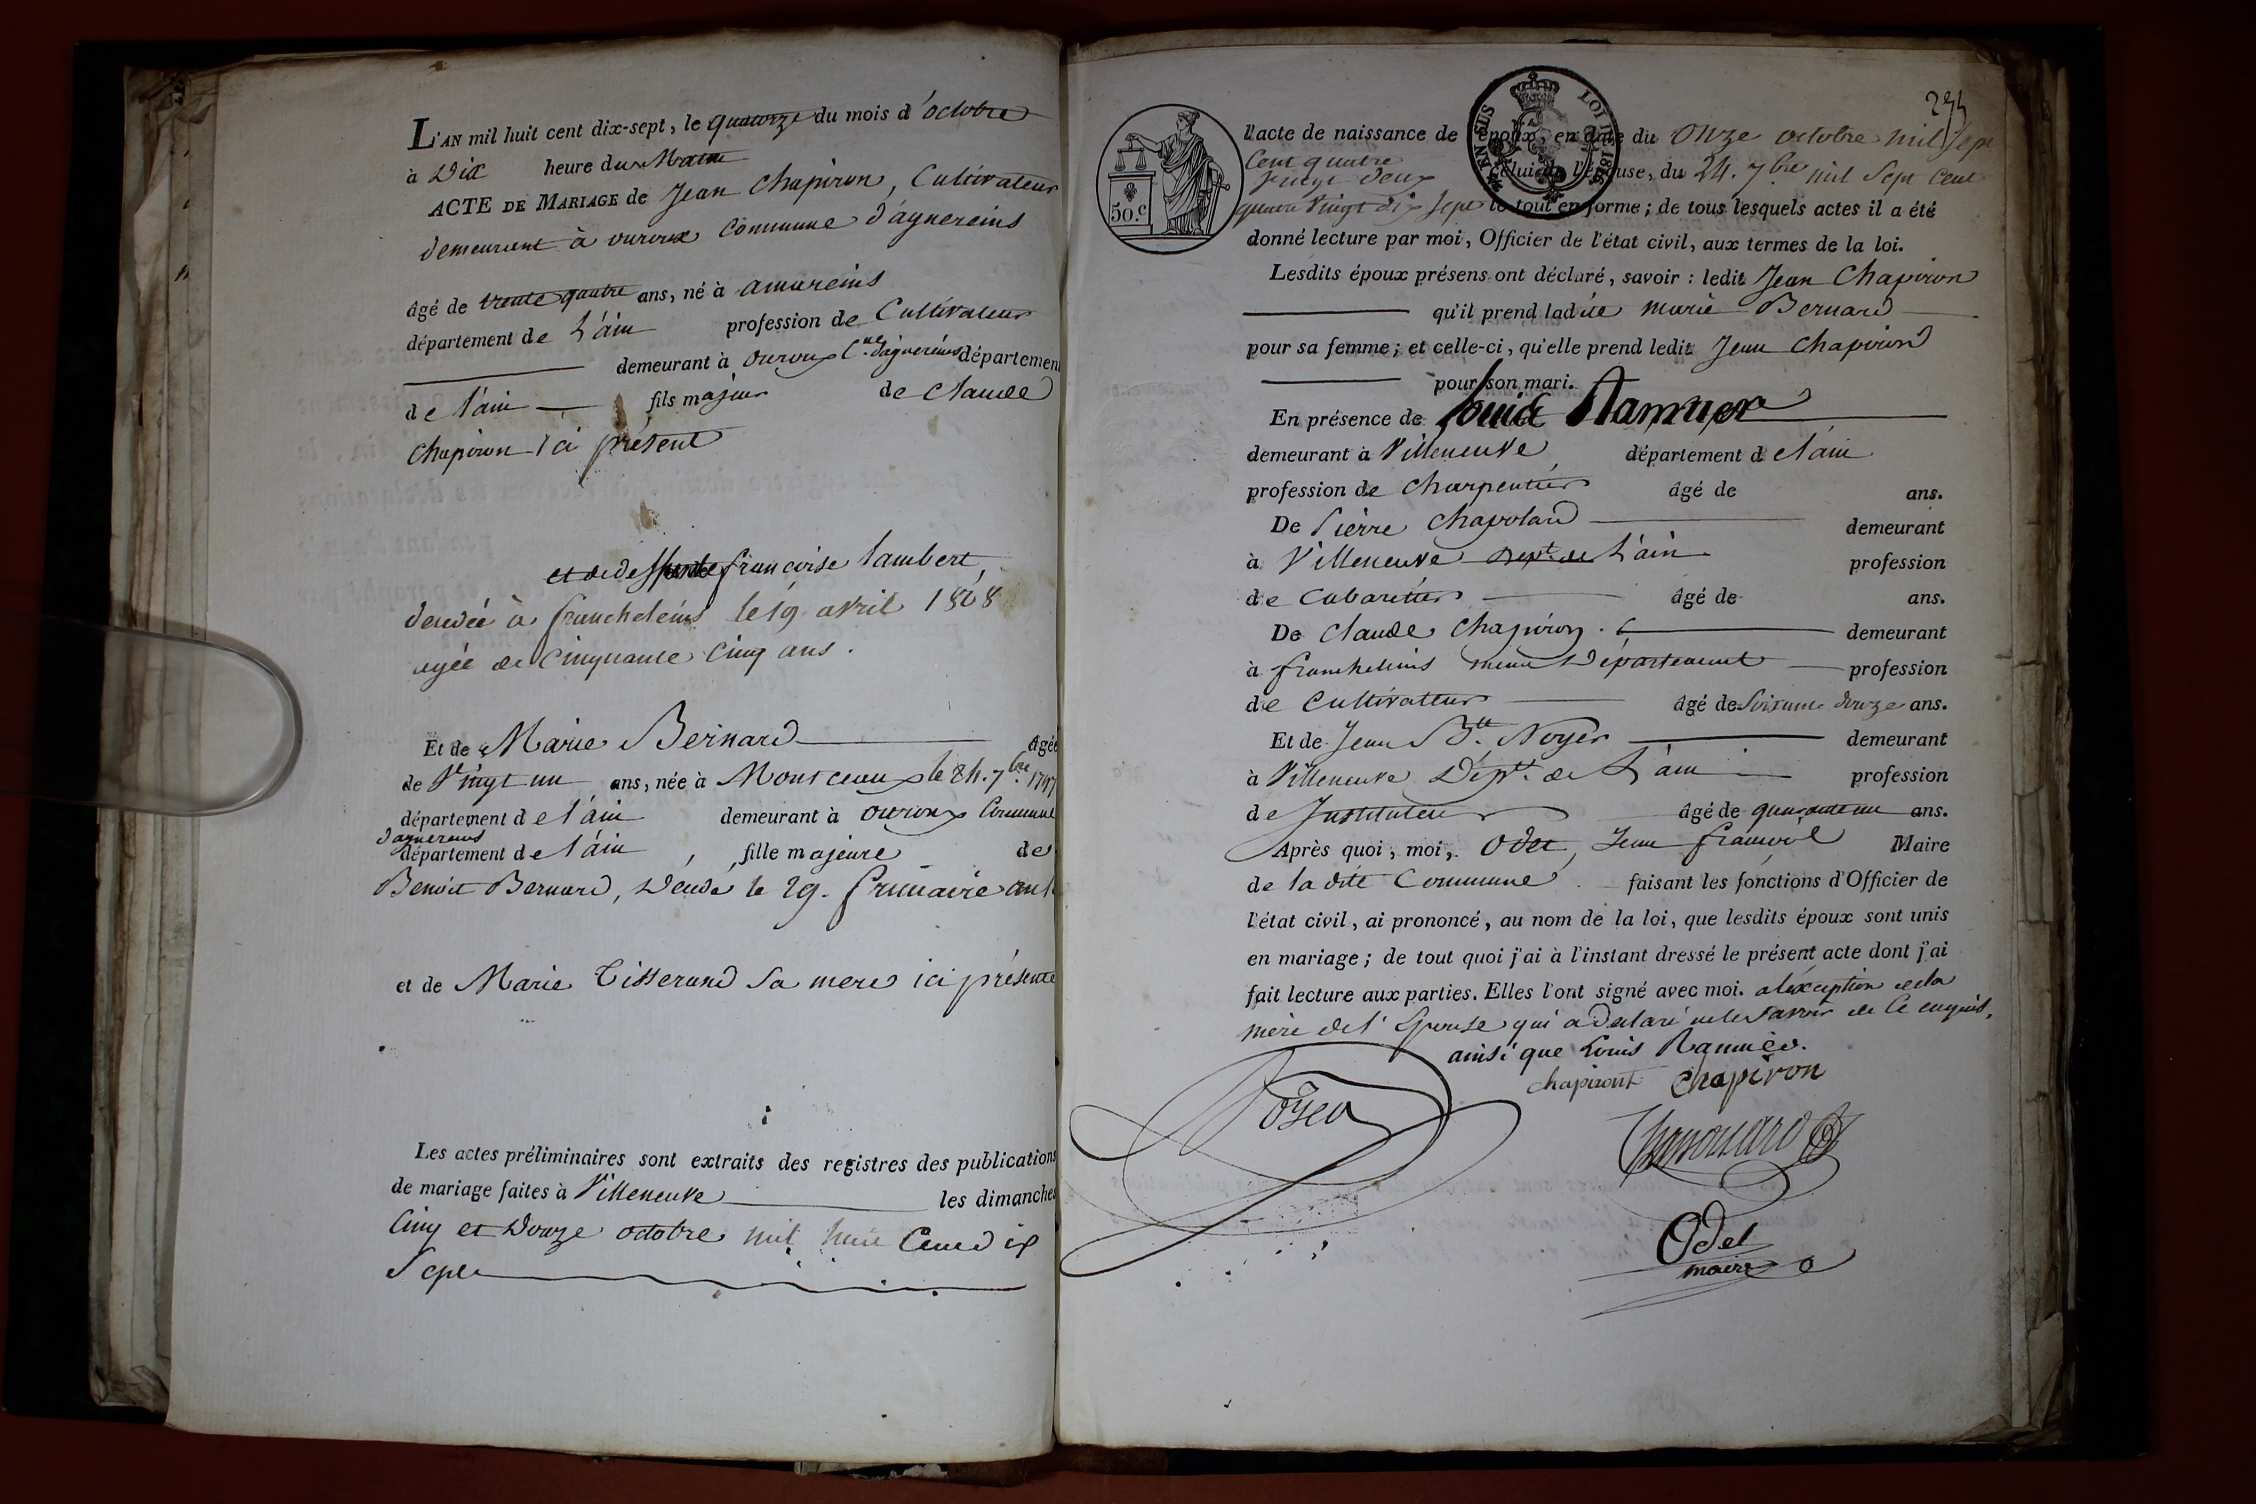 L'AN mil huit cent dix-sept, le quatorze du mois d'octobre
à Dix heure du Matin
ACTE DE MARIAGE de Jean Chapiron, Cultivateur
demeurant à ouroux Commune d'agnereins
âgé de trente quatre ans, né à amareins
département de L'ain profession de Cultivateur
demeurant à ouroux C.ne d'agnereins département
de l'ain fils majeur de Claude
Chapiron ici présent
et de françoise lambert
décédée à francheleins le 19 avril 1808
agée de Cinquante Cinq ans.
Et de Marie Bernard âgée
de Vingt un ans, née à Montceaux le 24. 7.bre 1797
département de l'ain demeurant à ouroux Commune
d'agnereins
département de l'ain, fille majeure de
Benoit Bernard, Décédé le 29. frimaire an
et de Marie Tisserand Sa mere ici présente
Les actes préliminaires sont extraits des registres des publications
de mariage faites à Villeneuve les dimanches
Cinq et Douze octobre mil huit Cent dix
Sept
50.c
EN SUS
LOI DE 1816
l'acte de naissance de l'époux, en date du onze octobre mil Sept
Cent quatre
Vingt deux
celui de l'épouse, du 24. 7bre mil Sept Cent
quatre Vingt dix Sept le tout en forme; de tous lesquels actes il a été
donné lecture par moi, Officier de l'état civil, aux termes de la loi.
Lesdits époux présens ont déclaré, savoir: ledit Jean Chapiron
qu'il prend ladite marie Bernard
pour sa femme; et celle-ci, qu'elle prend ledit Jean Chapiron
pour son mari.
En présence de Louis Ramuer
demeurant à Villeneuve, département de l'ain
profession de Charpentier âgé de ans.
De Pierre Chapolard demeurant
à Villeneuve Dept. de L'ain profession
de Cabaretier âgé de ans.
De Claude Chapiron. demeurant
à francheleins meme Département profession
de Cultivateur âgé de Soixante douze ans.
Et de Jean B.te Noyer demeurant
à Villeneuve Dép.t de L'ain profession
de Instituteur âgé de quarante un ans.
Après quoi, moi, Odet, Jean françois Maire
de la dite Commune faisant les fonctions d'Officier de
l'état civil, ai prononcé, au nom de la loi, que lesdits époux sont unis
en mariage; de tout quoi j'ai à l'instant dressé le présent acte dont j'ai
fait lecture aux parties. Elles l'ont signé avec moi. a l'exception de la
mère de l'Epouse qui a declaré ne le Savoir de Ce enquis,
ainsi que Louis Ramuer.
chapiront chapiron
Noyer
Odet
maire